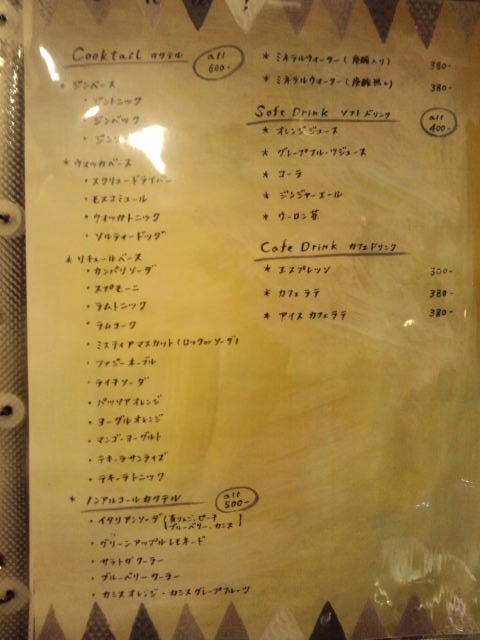 Cooktail カクテル all 600-
* ジンベース
・ジントニック
・ジンバック
・ジン
* ウォッカベース
・スクリュードライバー
・モスコミュール
・ウォッカトニック
・ソルティードッグ
* リキュールベース
・カンパリソーダ
・スプモーニ
・ラムトニック
・ラムコーク
・ミスティアマスカット(ロックorソーダ)
・ファジーネーブル
・ライチソーダ
・パッソアオレンジ
・ヨーグルオレンジ
・マンゴーヨーグルト
・テキーラサンライズ
・テキーラトニック
* ノンアルコールカクテル all 500-
・イタリアンソーダ(青りんご、ピーチ
ブルーベリー、カシス)
・グリーンアップルレモネード
・サラトガクーラー
・ブルーベリークーラー
・カシスオレンジ・カシスグレープフルーツ
* ミネラルウォーター(炭酸入り) 380-
* ミネラルウォーター(炭酸無し) 380-
Soft Drink ソフトドリンク all 400-
* オレンジジュース
* グレープフルーツジュース
* コーラ
* ジンジャーエール
* ウーロン茶
Cafe Drink カフェドリンク
* エスプレッソ 300-
* カフェラテ 380-
* アイスカフェラテ 380-